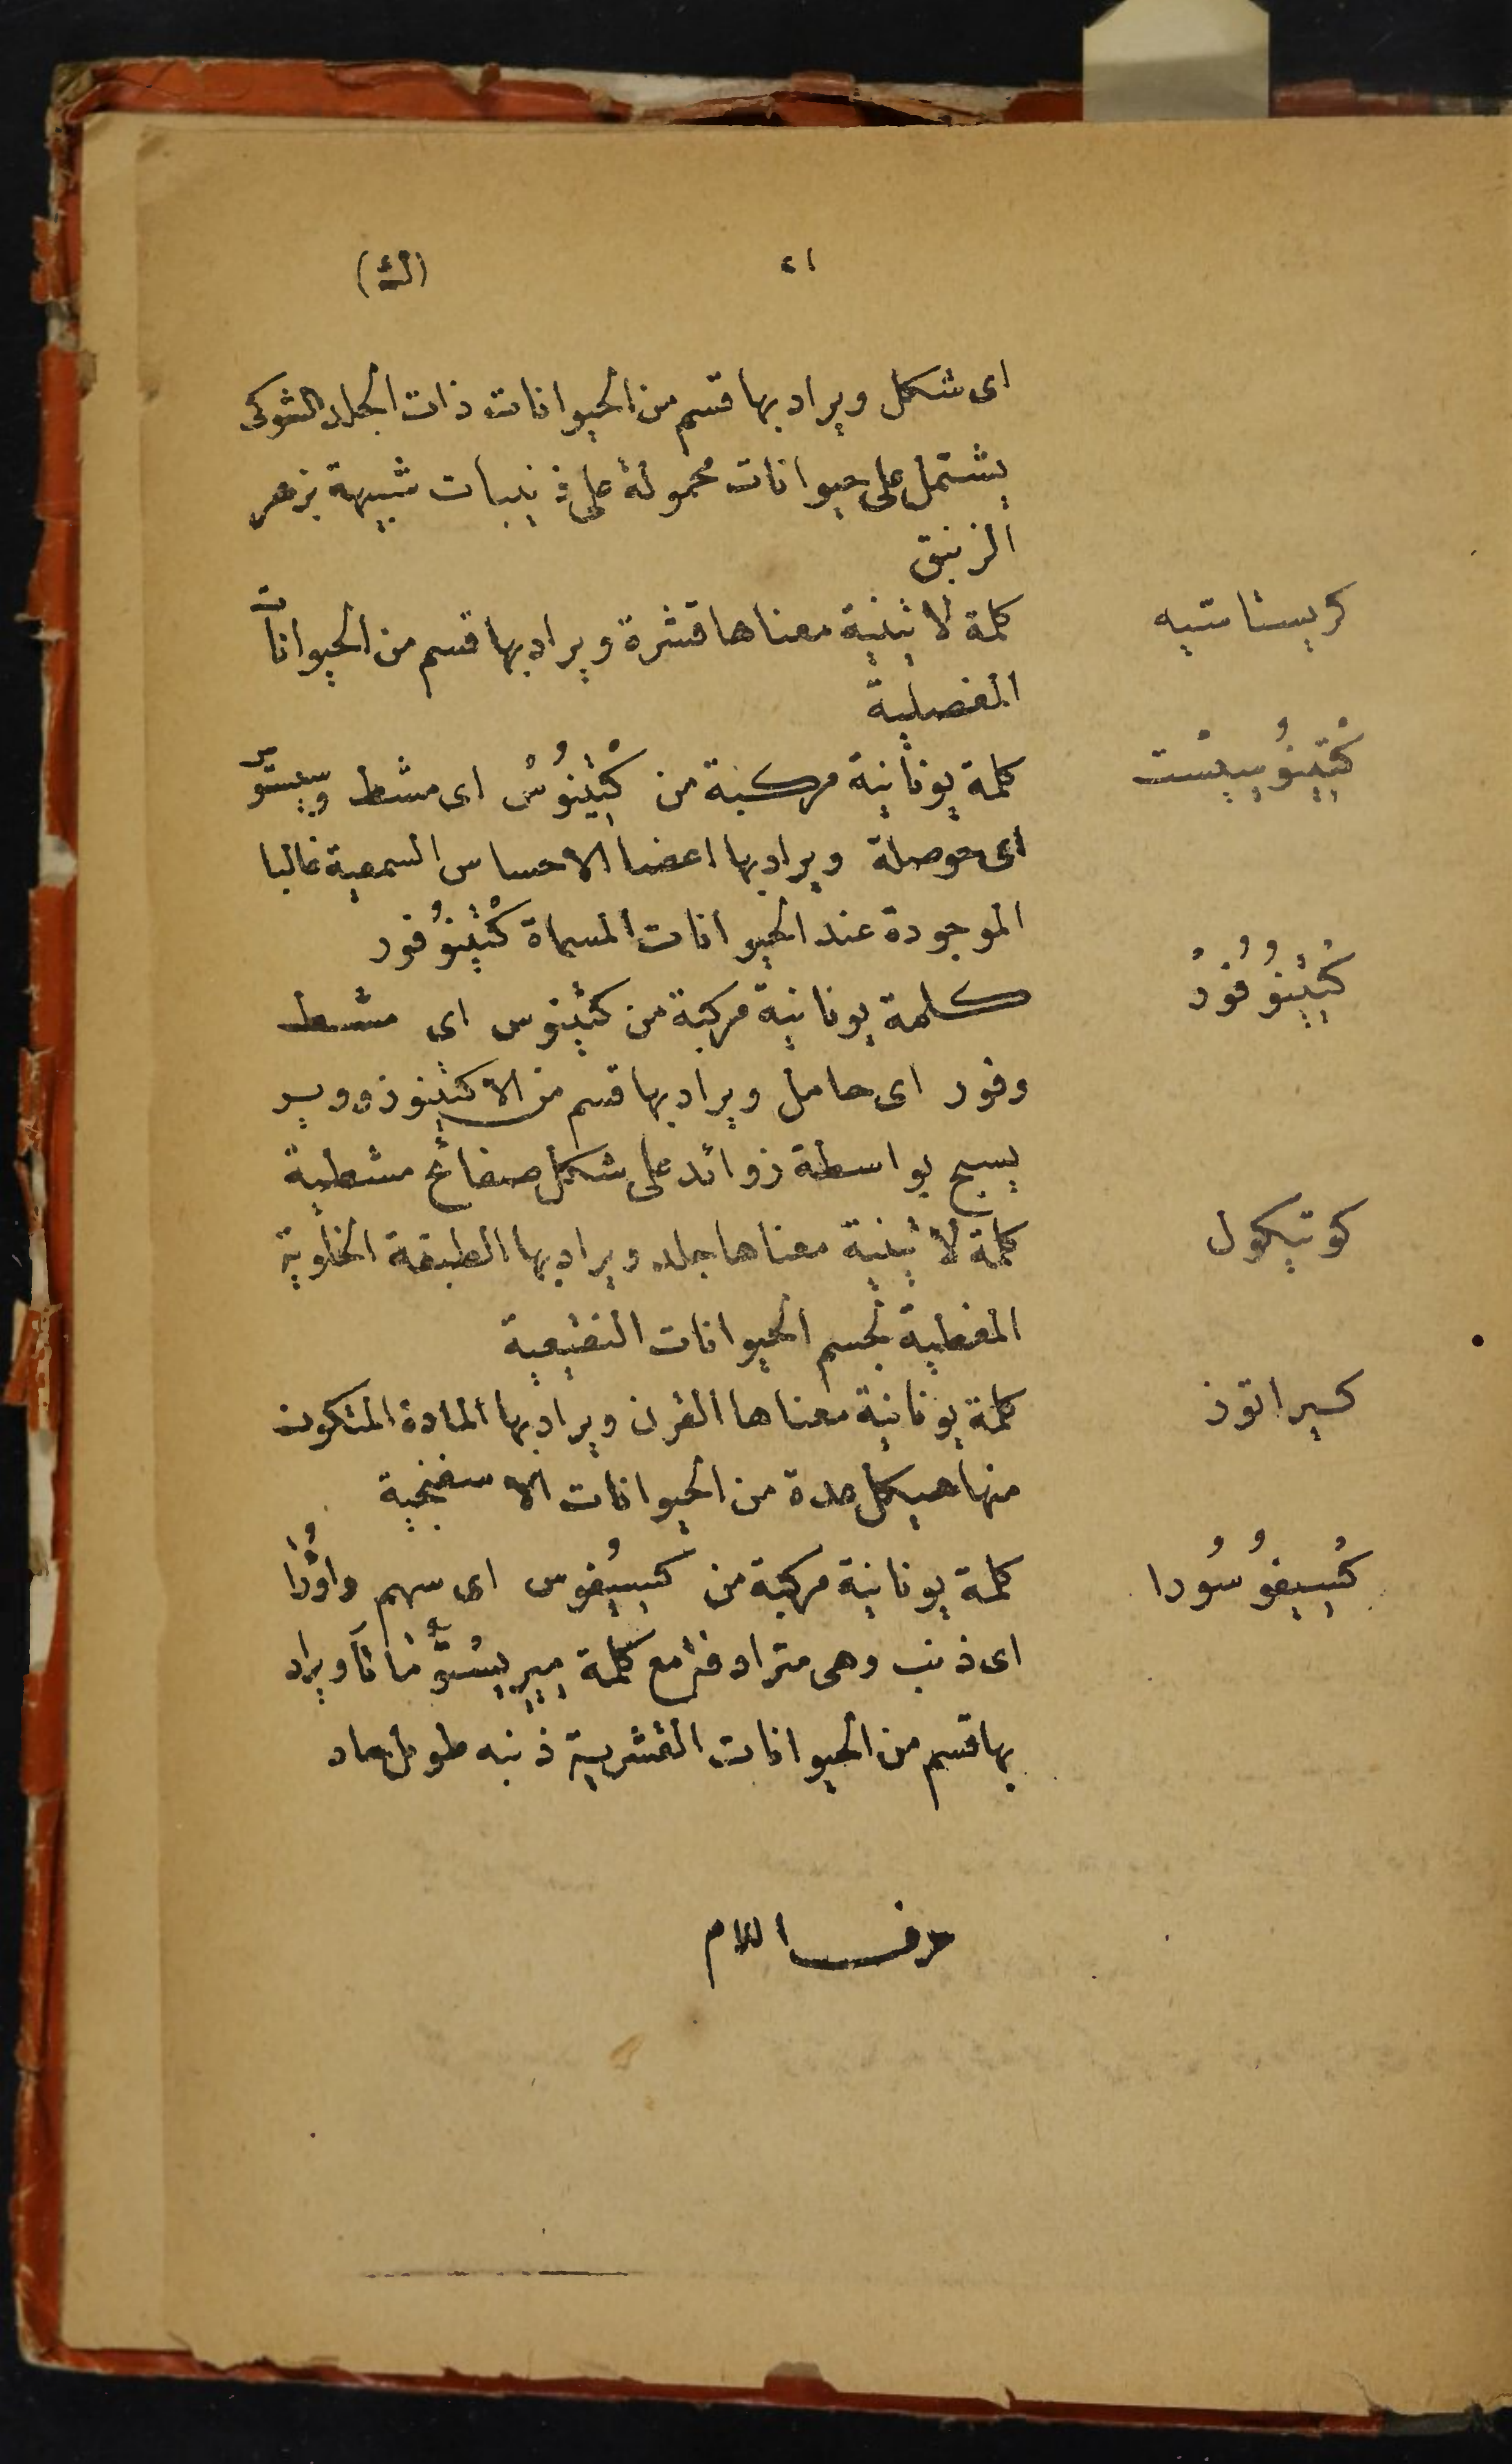 ٢١
(ك)
اى شكل ويراد بها قسم من الحيوانات ذات الجلد الشوكى
يشتمل على حيوانات محمولة على ذنيبات شبيهة بزهر
الزنبق
كريستاسيه
كلمة لاتينية معناها قشرة ويراد بها قسم من الحيوانات
المفصلية
كْتِينُوسِيسْت
كلمة يونانية مركبة من كْتِينُوسْ اى مشط وسيستو
اى حوصلة ويراد بها اعضا الاحساس السمعية غالبا
الموجودة عند الحيوانات المسماة كْتِينُوفور
كْتِينُوفُورْ
كلمة يونانية مركبة من كتينوس اى مشط
وفور اى حامل ويراد بها قسم من الاكتينوزووير
يسبح بواسطة زوائد على شكل صفائح مشطية
كوتيكول
كلمة لاتينية معناها جلد ويراد بها الطبقة الخلوية
المغطية لجسم الحيوانات النقيعية
كيراتوز
كلمة يونانية معناها القرن ويراد بها المادة المتكون
منها هيكل عدة من الحيوانات الاسفنجية
كْسِيفُوسُورا
كلمة يونانية مركبة من كسيفوس اى سهم واوُرَا
اى ذنب وهى مترادفة مع كلمة ميريستوماتا ويراد
بها قسم من الحيوانات القشرية ذنبه طويل حاد
حرف اللام